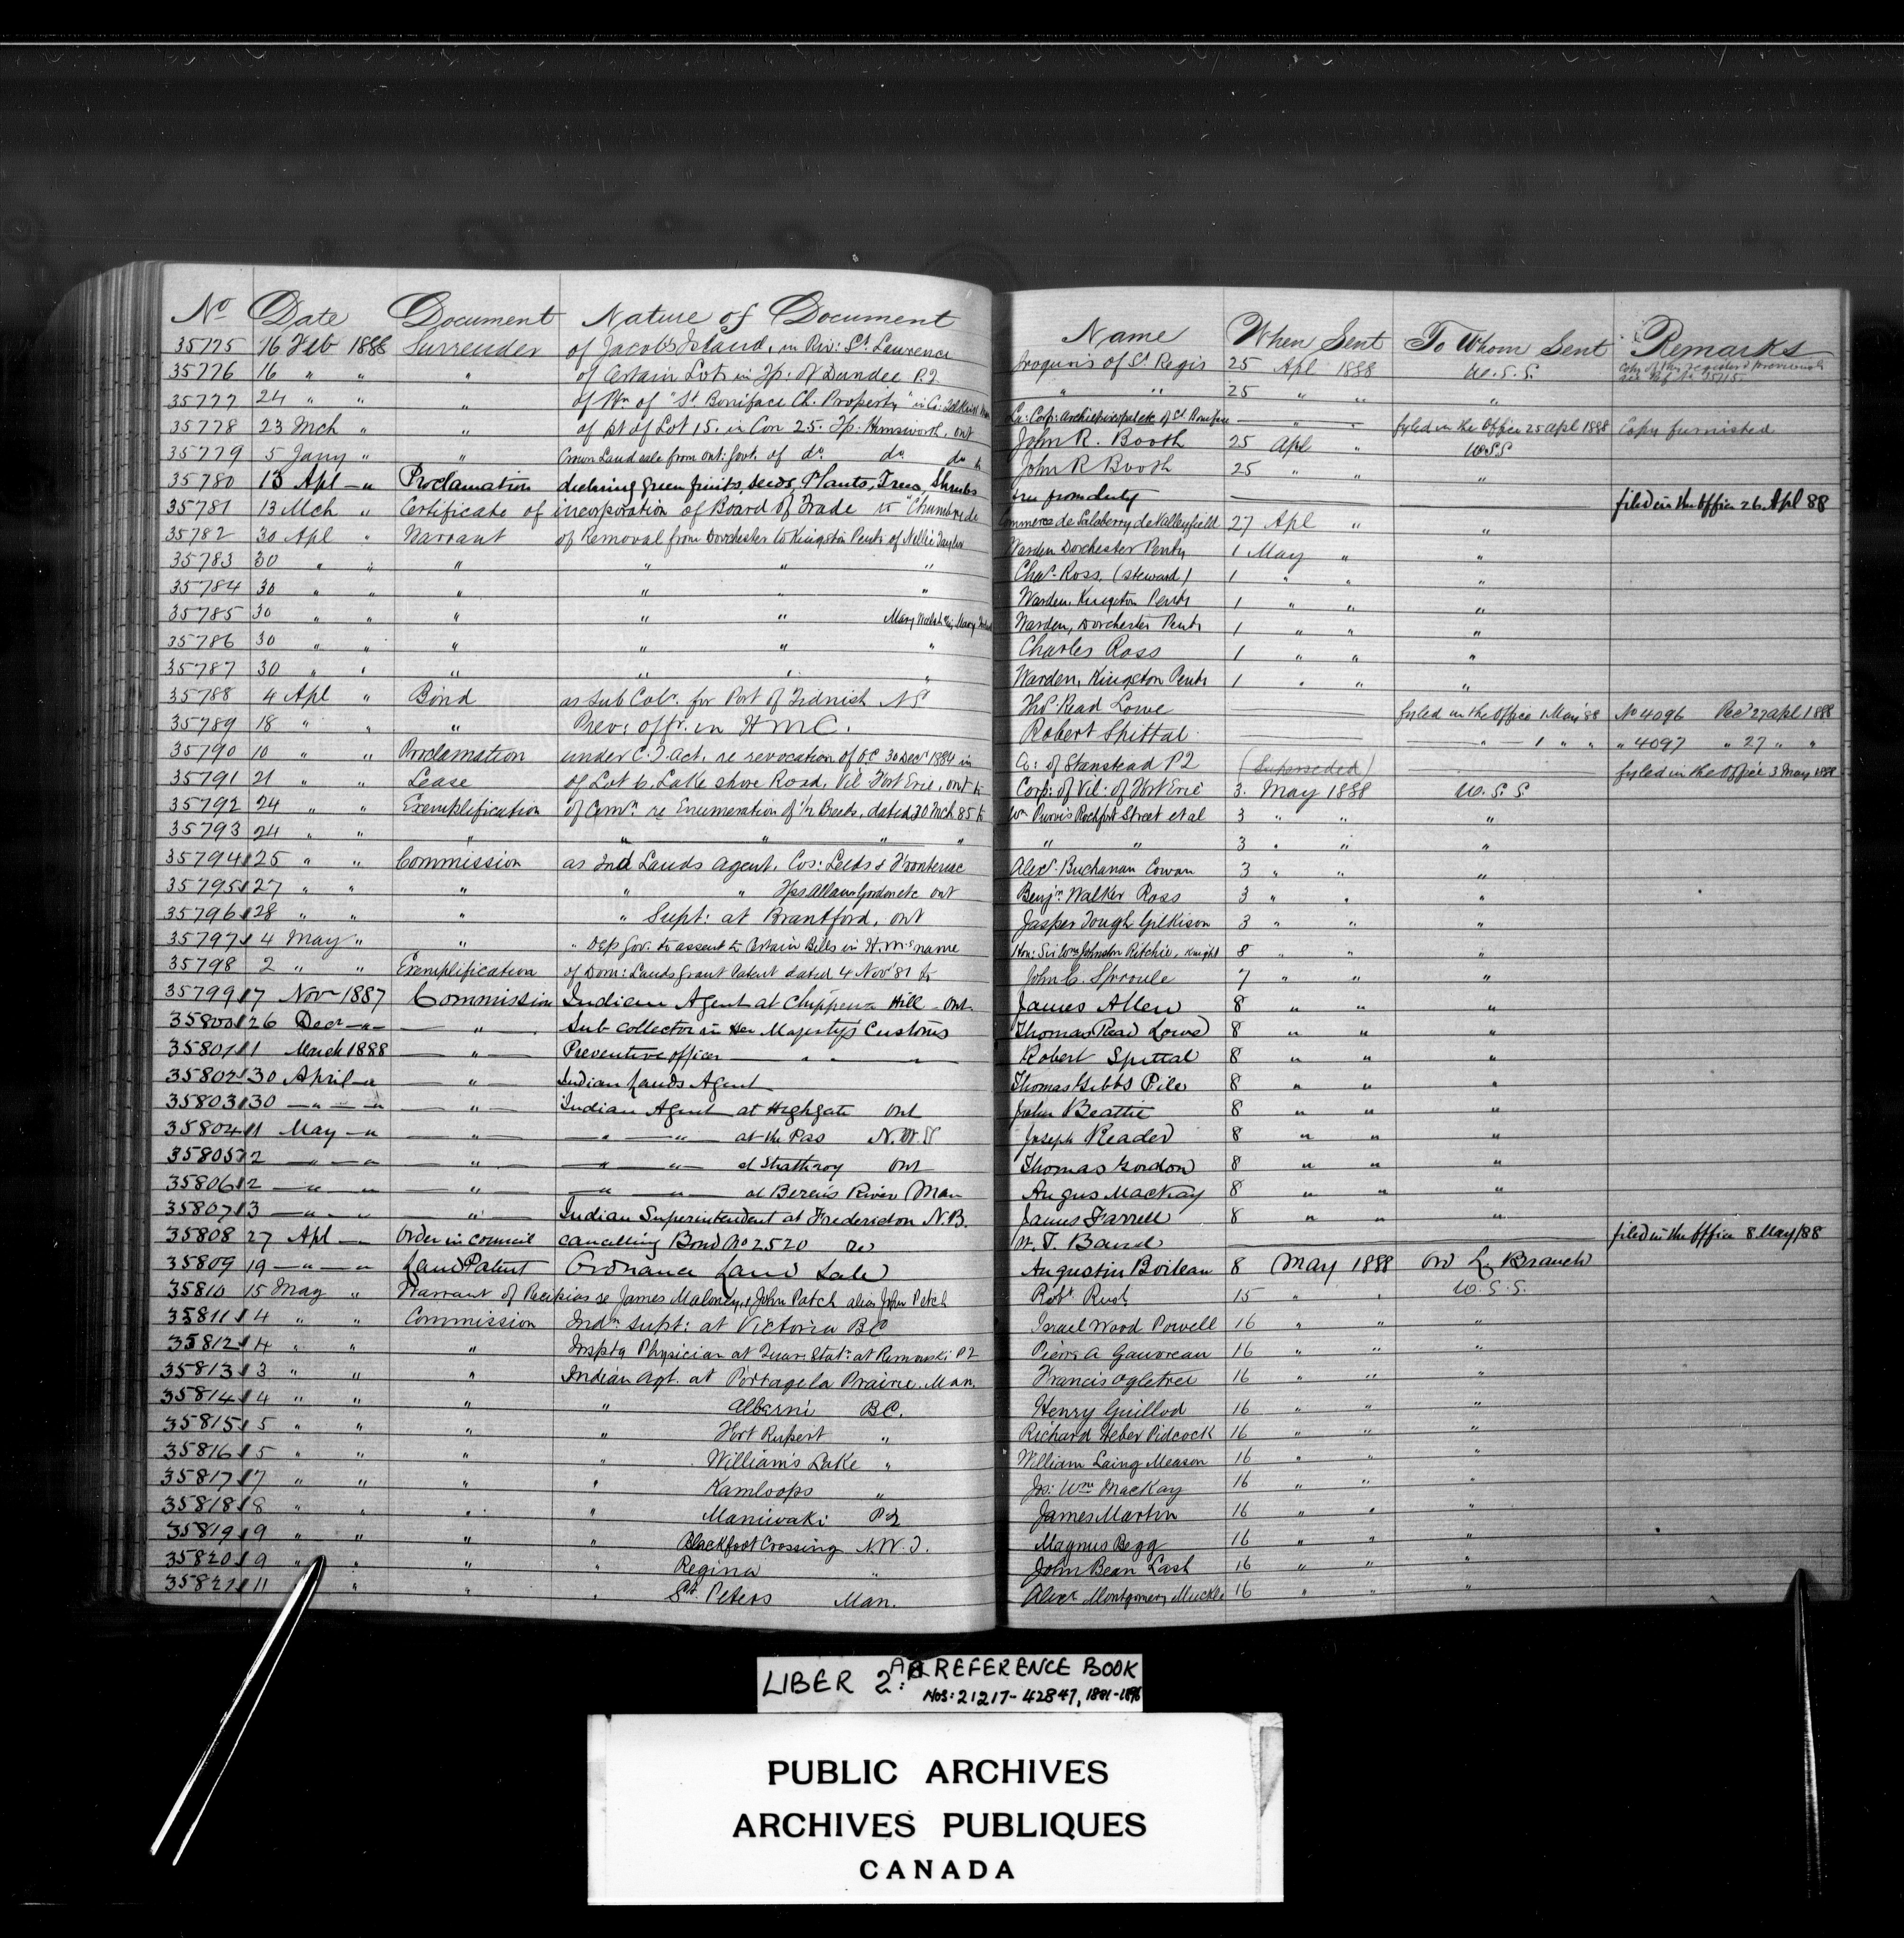 No Date Document Nature of Document Name When Sent To Whom Sent Remarks
35775 16 Feb 1888 Surrender of Jacob's Island, in Riv: St. Lawrence Iroquois of St Regis 25 Apl 1888 U.S.S.
35776 16 " " " of Certain Lots in Tp: of Dundee P.Q. " " 25 " " "
35777 24 " " " of Pn of "St Boniface Ch. Property" in Co: Selkirk Man La: Corp: archiepiscopale of St Boniface — " " fyled in the Office 25 Apl 1888 Copy furnished
35778 23 Mch " " of pt of Lot 15. in Con 25. Tp. Himsworth, Ont John R. Booth 25 Apl " U.S.S
35779 5 Jany " " Crown Land sale from Ont: Govt. of do do do to John R Booth 25 " " "
35780 13 Apl — " Proclamation declaring green fruits, seeds, Plants, Trees, Shrubs free from duty filed in the Office 26 Apl 88
35781 13 Mch " Certificate of incorporation of Board of Trade to "Chambre de Commerce de Salaberry de Valleyfield 27 Apl " "
35782 30 Apl " Warrant of Removal from Dorchester to Kingston Penty of Nellie Taylor Warden Dorchester Penty 1 May " "
35783 30 " " " " " " Chas. Ross. (steward) 1 " " "
35784 30 " " " " " " Warden, Kingston Penty 1 " " "
35785 30 " " " " " Mary Welsh Warden, Dorchester Penty 1 " " "
35786 30 " " " " " " Charles Ross 1 " " "
35787 30 " " " " " " Warden, Kingston Penty 1 " " "
35788 4 Apl " Bond as Sub Colr. for Port of Tidnish NS Thos. Read Lowe — fyled in the Office 1 May '88 No 4096 Recd 27 Apl 1888
35789 18 " " " Prev: offr. in H M C. Robert Spittal — " — 1 " " " 4097 " 27 " "
35790 10 " " Proclamation under C.T. Act. re revocation of O.C 30 Decr 1884 in Co: of Stanstead PQ (Superseded) fyled in the Office 3 May 1888
35791 21 " " Lease of Lot 6. Lake shore Road, Vil Fort Erie, Ont to Corp: of Vil: of Fort Erie 3. May 1888 U.S.S.
35792 24 " " Exemplification of Comn. re Enumeration of 1/2 Breeds, dated 30 Mch 85 to Wm Purvis Rochfort Street et al 3 " " "
35793 24 " " " " " " " " " 3 " " "
35794 25 " " Commission as Ind Lands Agent. Cos: Leeds & Frontenac Alexr. Buchanan Cowan 3 " " "
35795 27 " " " " " Tps Allan Gordon etc Ont Benjn. Walker Ross 3 " " "
35796 28 " " " " Supt: at Brantford, Ont Jasper Tough Gilkison 3 " " "
35797 4 May " " " Dep Gov. to assent to Certain Bills in H.M's name Hon: Sir Wm Johnston Ritchie, Knight 8 " " "
35798 2 " " Exemplification of Dom: Lands Grant Patent dated 4 Nov '81 to John C. Sproule 7 " " "
35799 17 Nov 1887 Commission Indian Agent at Chippewa Hill Ont. James Allen 8 " " "
35800 26 Decr — " — " — Sub Collector in Her Majesty's Customs Thomas Read Lowe 8 " " "
35801 1 March 1888 — " — Preventive officer — " " Robert Spittal 8 " " "
35802 30 April — " — " — Indian Lands Agent Thomas Gibbs Pile 8 " " "
35803 30 — " — " — " — Indian Agent at Highgate Ont John Beattie 8 " " "
35804 1 May — " — " — — " — " — at the Pas N.W.T Joseph Reader 8 " " "
35805 2 — " — " — " — — " — " — at Strathroy Ont Thomas Gordon 8 " " "
35806 2 — " — " — " — — " — " — at Berens River Man Angus MacKay 8 " " "
35807 3 — " — " — " — Indian Superintendent at Fredericton N.B. James Farrell 8 " " "
35808 27 Apl — " Order in Council cancelling Bond No 2520 re W. T. Baird filed in the Office 8 May/88
35809 19 — " — " Land Patent Ordnance Land Sale Augustin Boileau 8 May 1888 Ord L. Branch
35810 15 May " Warrant of Recipias re James Maloney, & John Patch alias John Petch Robt Rush 15 " " U.S.S.
35811 4 " " Commission Indn. Supt: at Victoria BC Israel Wood Powell 16 " " "
35812 14 " " " Insptg Physician at Quar: Statn: at Rimouski PQ Pierre A Gauvreau 16 " " "
35813 3 " " " Indian Agt. at Portage la Prairie. Man. Francis Ogletree 16 " " "
35814 4 " " " " Alberni BC. Henry Guillod 16 " " "
35815 5 " " " " Fort Rupert " Richard Heber Pidcock 16 " " "
35816 5 " " " " William's Lake " William Laing Meason 16 " " "
35817 7 " " " " Kamloops " Jos: Wm MacKay 16 " " "
35818 8 " " " " Maniwaki PQ James Martin 16 " " "
35819 9 " " " " Blackfoot Crossing N.W.T. Magnus Begg 16 " " "
35820 9 " " " " Regina " John Bean Lash 16 " " "
35821 11 " " " St. Peters Man. Alexr Montgomery Muckle 16 " " "
LIBER 2: REFERENCE BOOK
NOS: 21217-42847, 1881-1896
PUBLIC ARCHIVES
ARCHIVES PUBLIQUES
CANADA